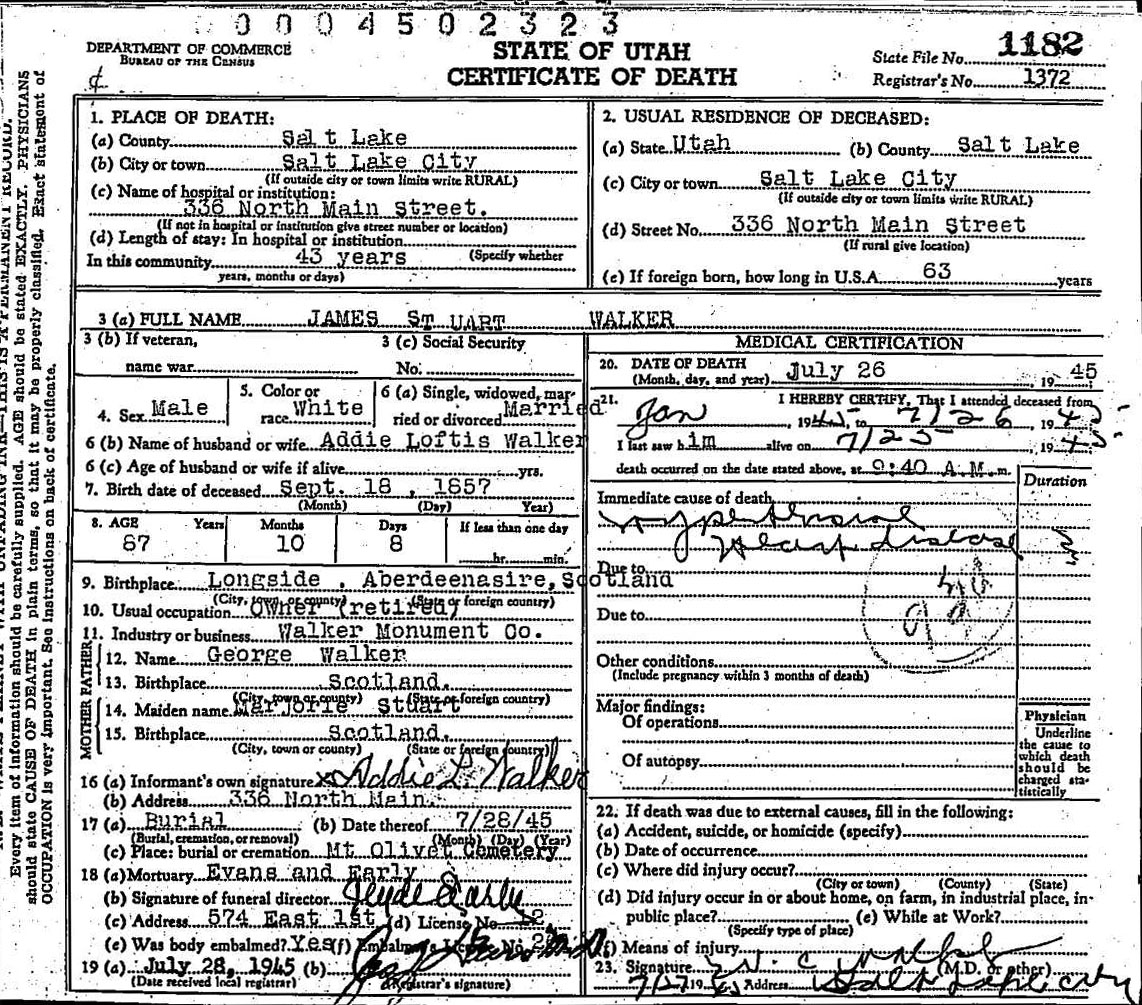 0004502323
DEPARTMENT OF COMMERCE
BUREAU OF THE CENSUS
STATE OF UTAH
CERTIFICATE OF DEATH
State File No. 1182
Registrar's No. 1372
Every item of information should be carefully supplied. AGE should be stated EXACTLY. PHYSICIANS
should state CAUSE OF DEATH in plain terms, so that it may be properly classified. Exact statement of
OCCUPATION is very important. See instructions on back of certificate.
1. PLACE OF DEATH:
(a) County Salt Lake
(b) City or town Salt Lake City
(If outside city or town limits write RURAL)
(c) Name of hospital or institution:
336 North Main Street.
(If not in hospital or institution give street number or location)
(d) Length of stay: In hospital or institution
In this community 43 years (Specify whether
years, months or days)
2. USUAL RESIDENCE OF DECEASED:
(a) State Utah (b) County Salt Lake
(c) City or town Salt Lake City
(If outside city or town limits write RURAL)
(d) Street No. 336 North Main Street
(If rural give location)
(e) If foreign born, how long in U.S.A. 63 years
3 (a) FULL NAME JAMES STUART WALKER
3 (b) If veteran,
name war
3 (c) Social Security
No.
4. Sex Male
5. Color or
race White
6 (a) Single, widowed, mar-
ried or divorced Married
6 (b) Name of husband or wife Addie Loftis Walker
6 (c) Age of husband or wife if alive yrs.
7. Birth date of deceased Sept. 18, 1857
(Month) (Day) Year)
8. AGE Years Months Days If less than one day
87 10 8 hr. min.
9. Birthplace Longside, Aberdeenasire, Scotland
(City, town, or county) (State or foreign country)
10. Usual occupation Owner (retired)
11. Industry or business Walker Monument Co.
FATHER
12. Name George Walker
13. Birthplace Scotland.
(City, town or county) (State or foreign country)
MOTHER
14. Maiden name Marjorie Stuart
15. Birthplace Scotland.
(City, town or county) (State or foreign country)
16 (a) Informant's own signature x Addie L. Walker
(b) Address 336 North Main.
17 (a) Burial (b) Date thereof 7/28/45
(Burial, cremation, or removal) (Month) (Day) (Year)
(c) Place: burial or cremation Mt Olivet Cemetery
18 (a) Mortuary Evans and Early
(b) Signature of funeral director
(c) Address 574 East 1st (d) License No. 12
(e) Was body embalmed? Yes (f) Embalmer's License No.
19 (a) July 28, 1945 (b)
(Date received local registrar) (Registrar's signature)
MEDICAL CERTIFICATION
20. DATE OF DEATH July 26, 1945
(Month, day, and year)
21. I HEREBY CERTIFY, That I attended deceased from
Jan, 1945, to 7/26, 1945
I last saw him alive on 7/25, 1945
death occurred on the date stated above, at 9:40 A.M. m.
Duration
Immediate cause of death
Heart disease
Due to
Due to
Other conditions
(Include pregnancy within 3 months of death)
Major findings:
Of operations
Of autopsy
Physician
Underline
the cause to
which death
should be
charged sta-
tistically
22. If death was due to external causes, fill in the following:
(a) Accident, suicide, or homicide (specify)
(b) Date of occurrence
(c) Where did injury occur?
(City or town) (County) (State)
(d) Did injury occur in or about home, on farm, in industrial place, in-
public place? (e) While at Work?
(Specify type of place)
(f) Means of injury
23. Signature (M.D. or other)
7/27 19 Address Salt Lake City